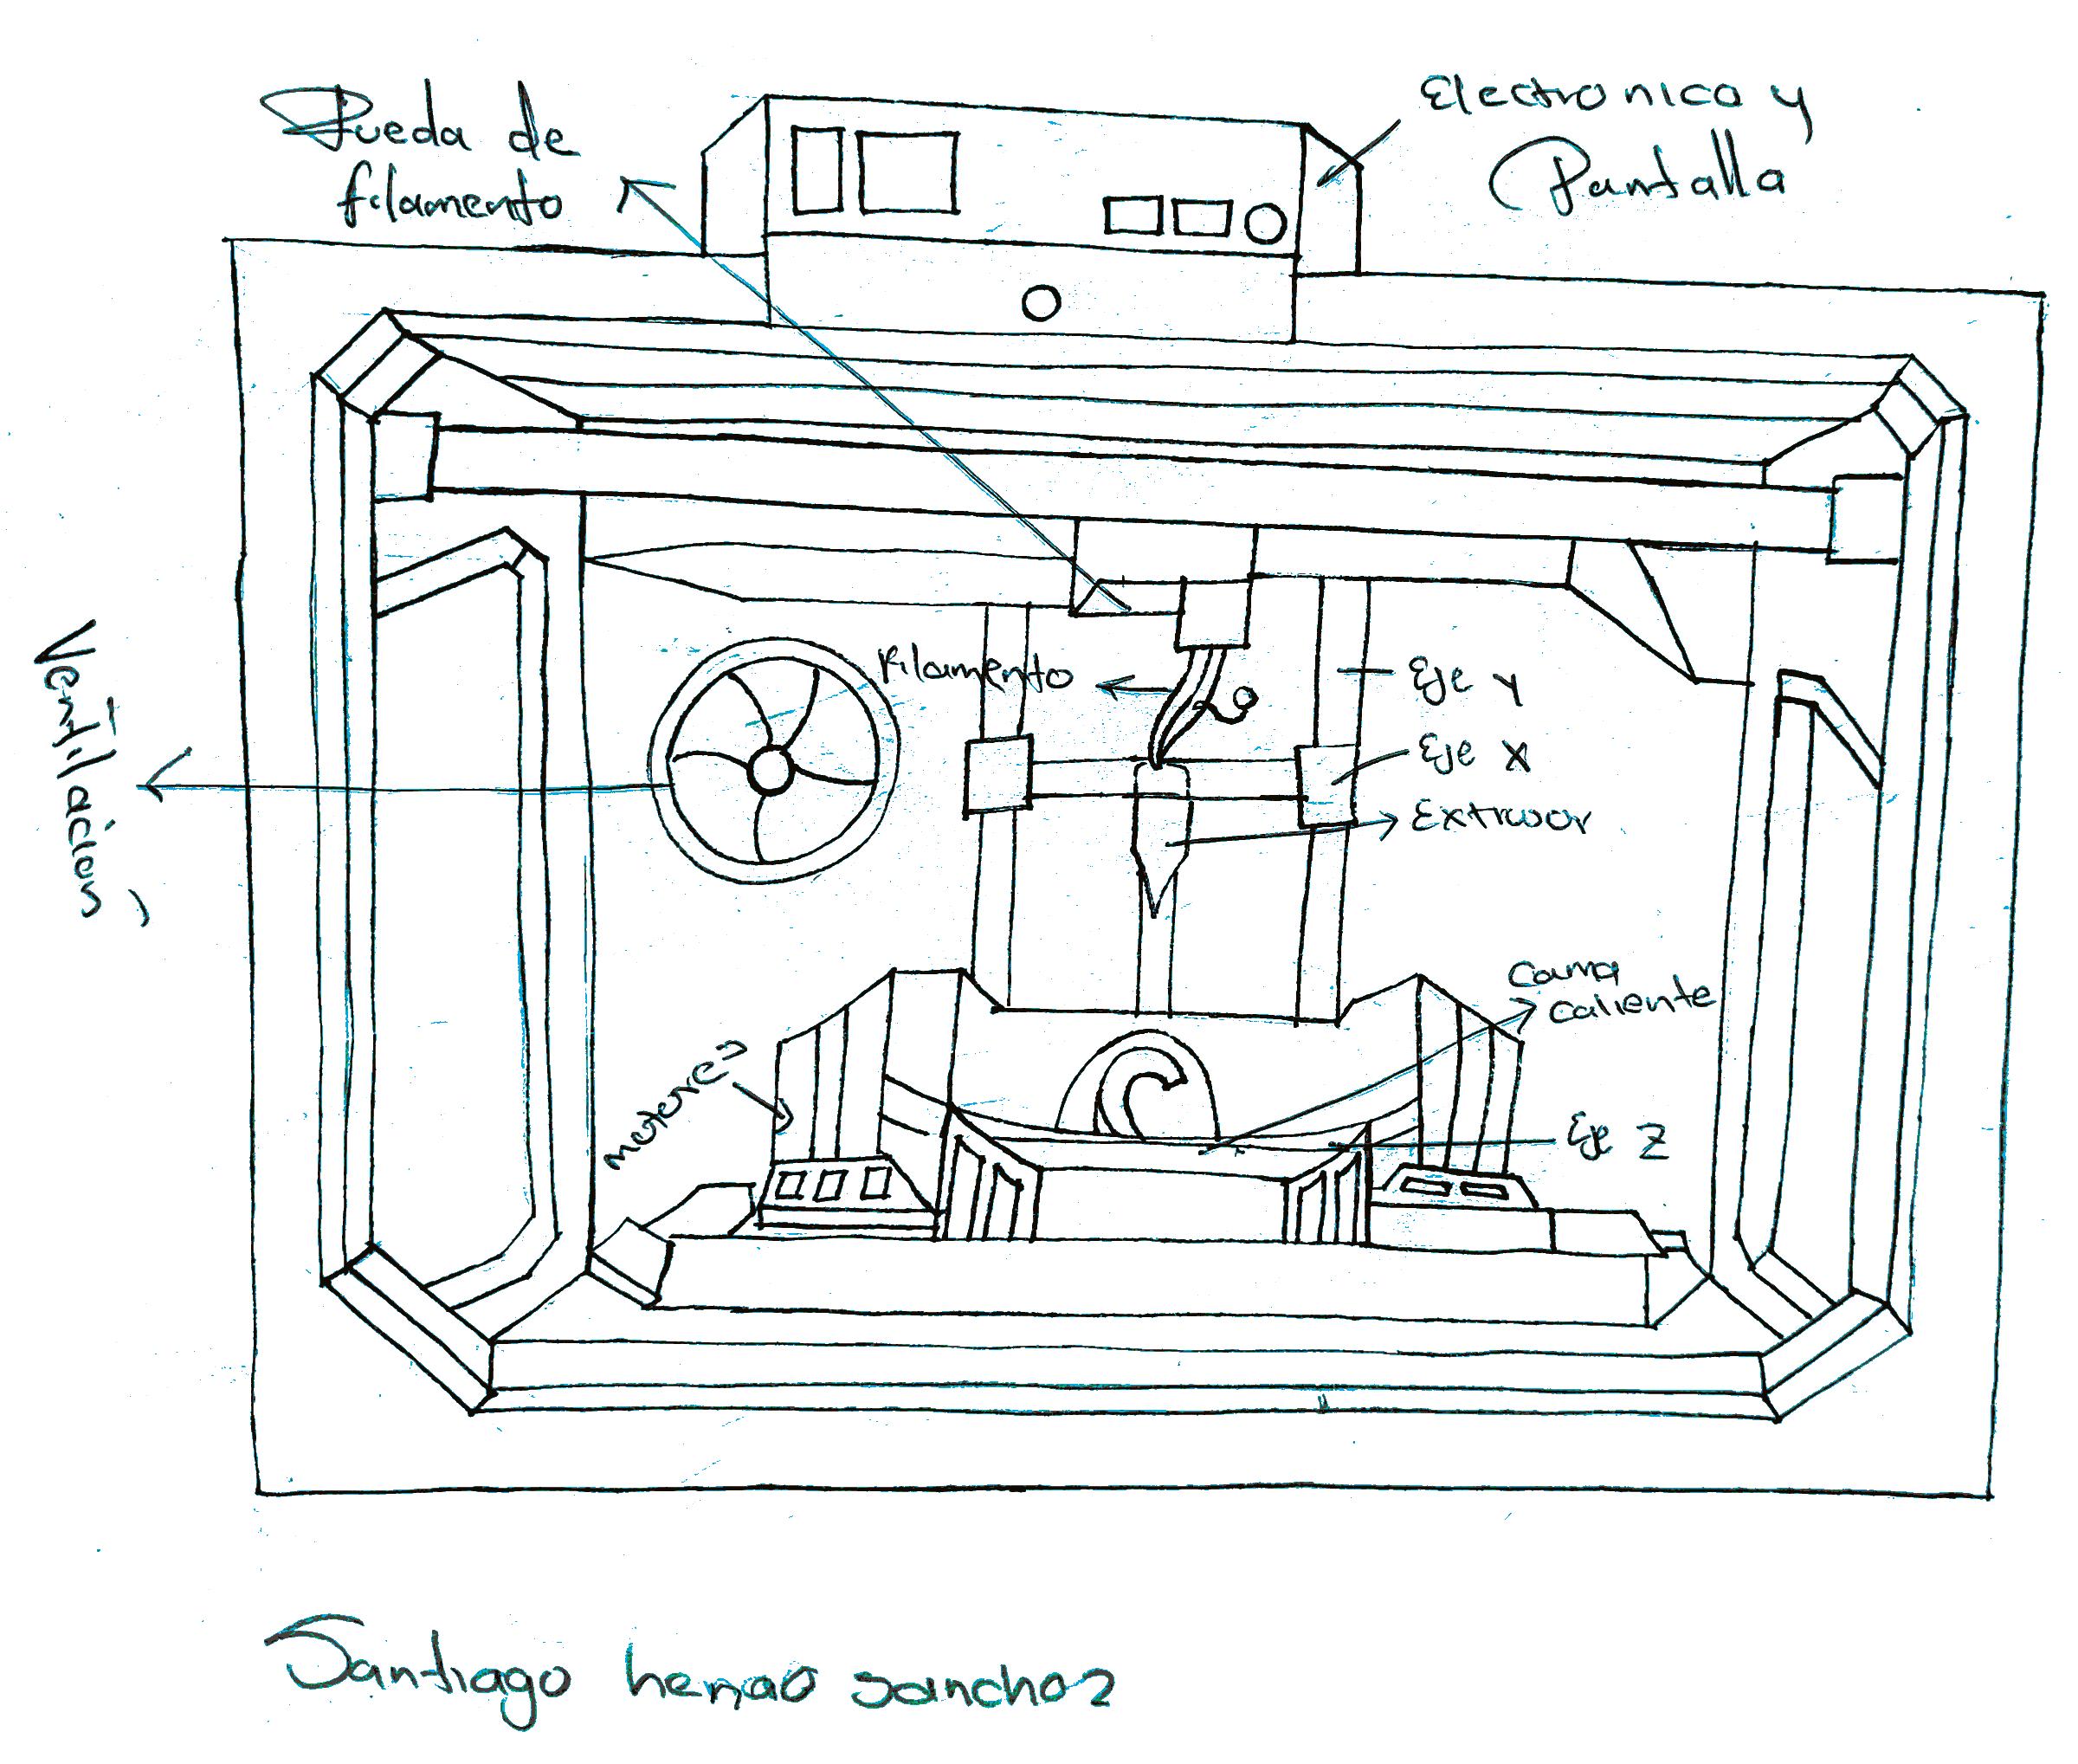 Rueda de
filamento
Electronica y
Pantalla
Filamento
Eje y
Eje X
Extrusor
Ventilacion
Cama
caliente
motores
Eje Z
Santiago henao sanchez